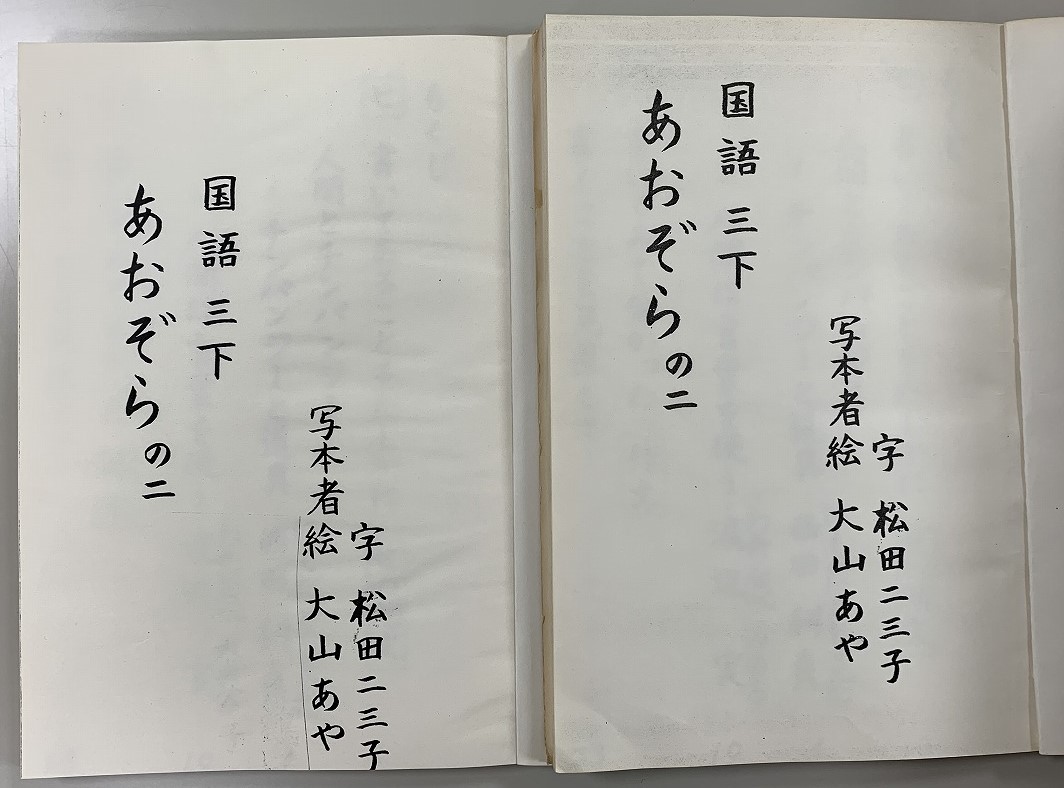 字 松田二三子
写本者絵 大山あや
国語 三下
あおぞらの二
字 松田二三子
写本者絵 大山あや
国語 三下
あおぞらの二